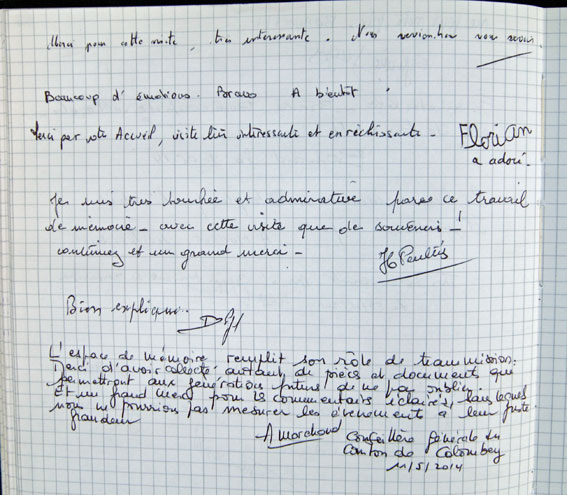 Merci pour cette visite, très intéressante. Nous reviendrons vous revoir
Beaucoup d'émotions. Bravo A bientôt.
Merci par votre Accueil, visite très intéressante et enrichissante -
FloriAn
a adoré.
Je suis très touchée et admirative par ce travail
de mémoire - avec cette visite que de souvenirs - !
continuez et un grand merci -
Bien expliqué.
L'espace de mémoire remplit son rôle de transmission.
Merci d'avoir collecté autant de pièces et documents que
permettront aux générations futures de ne pas oublier.
Et un grand merci pour les commentaires éclairés, sans lesquels
nous ne pourrions pas mesurer les évènement à leur juste
grandeur
A Marchand Conseillère générale du
Canton de Colombey
11/5/2014